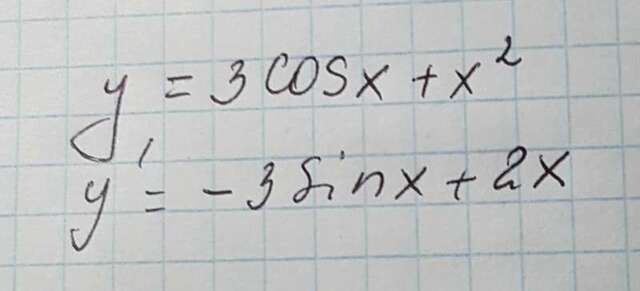 y = 3 cosx + x²
y' = -3 sinx + 2x